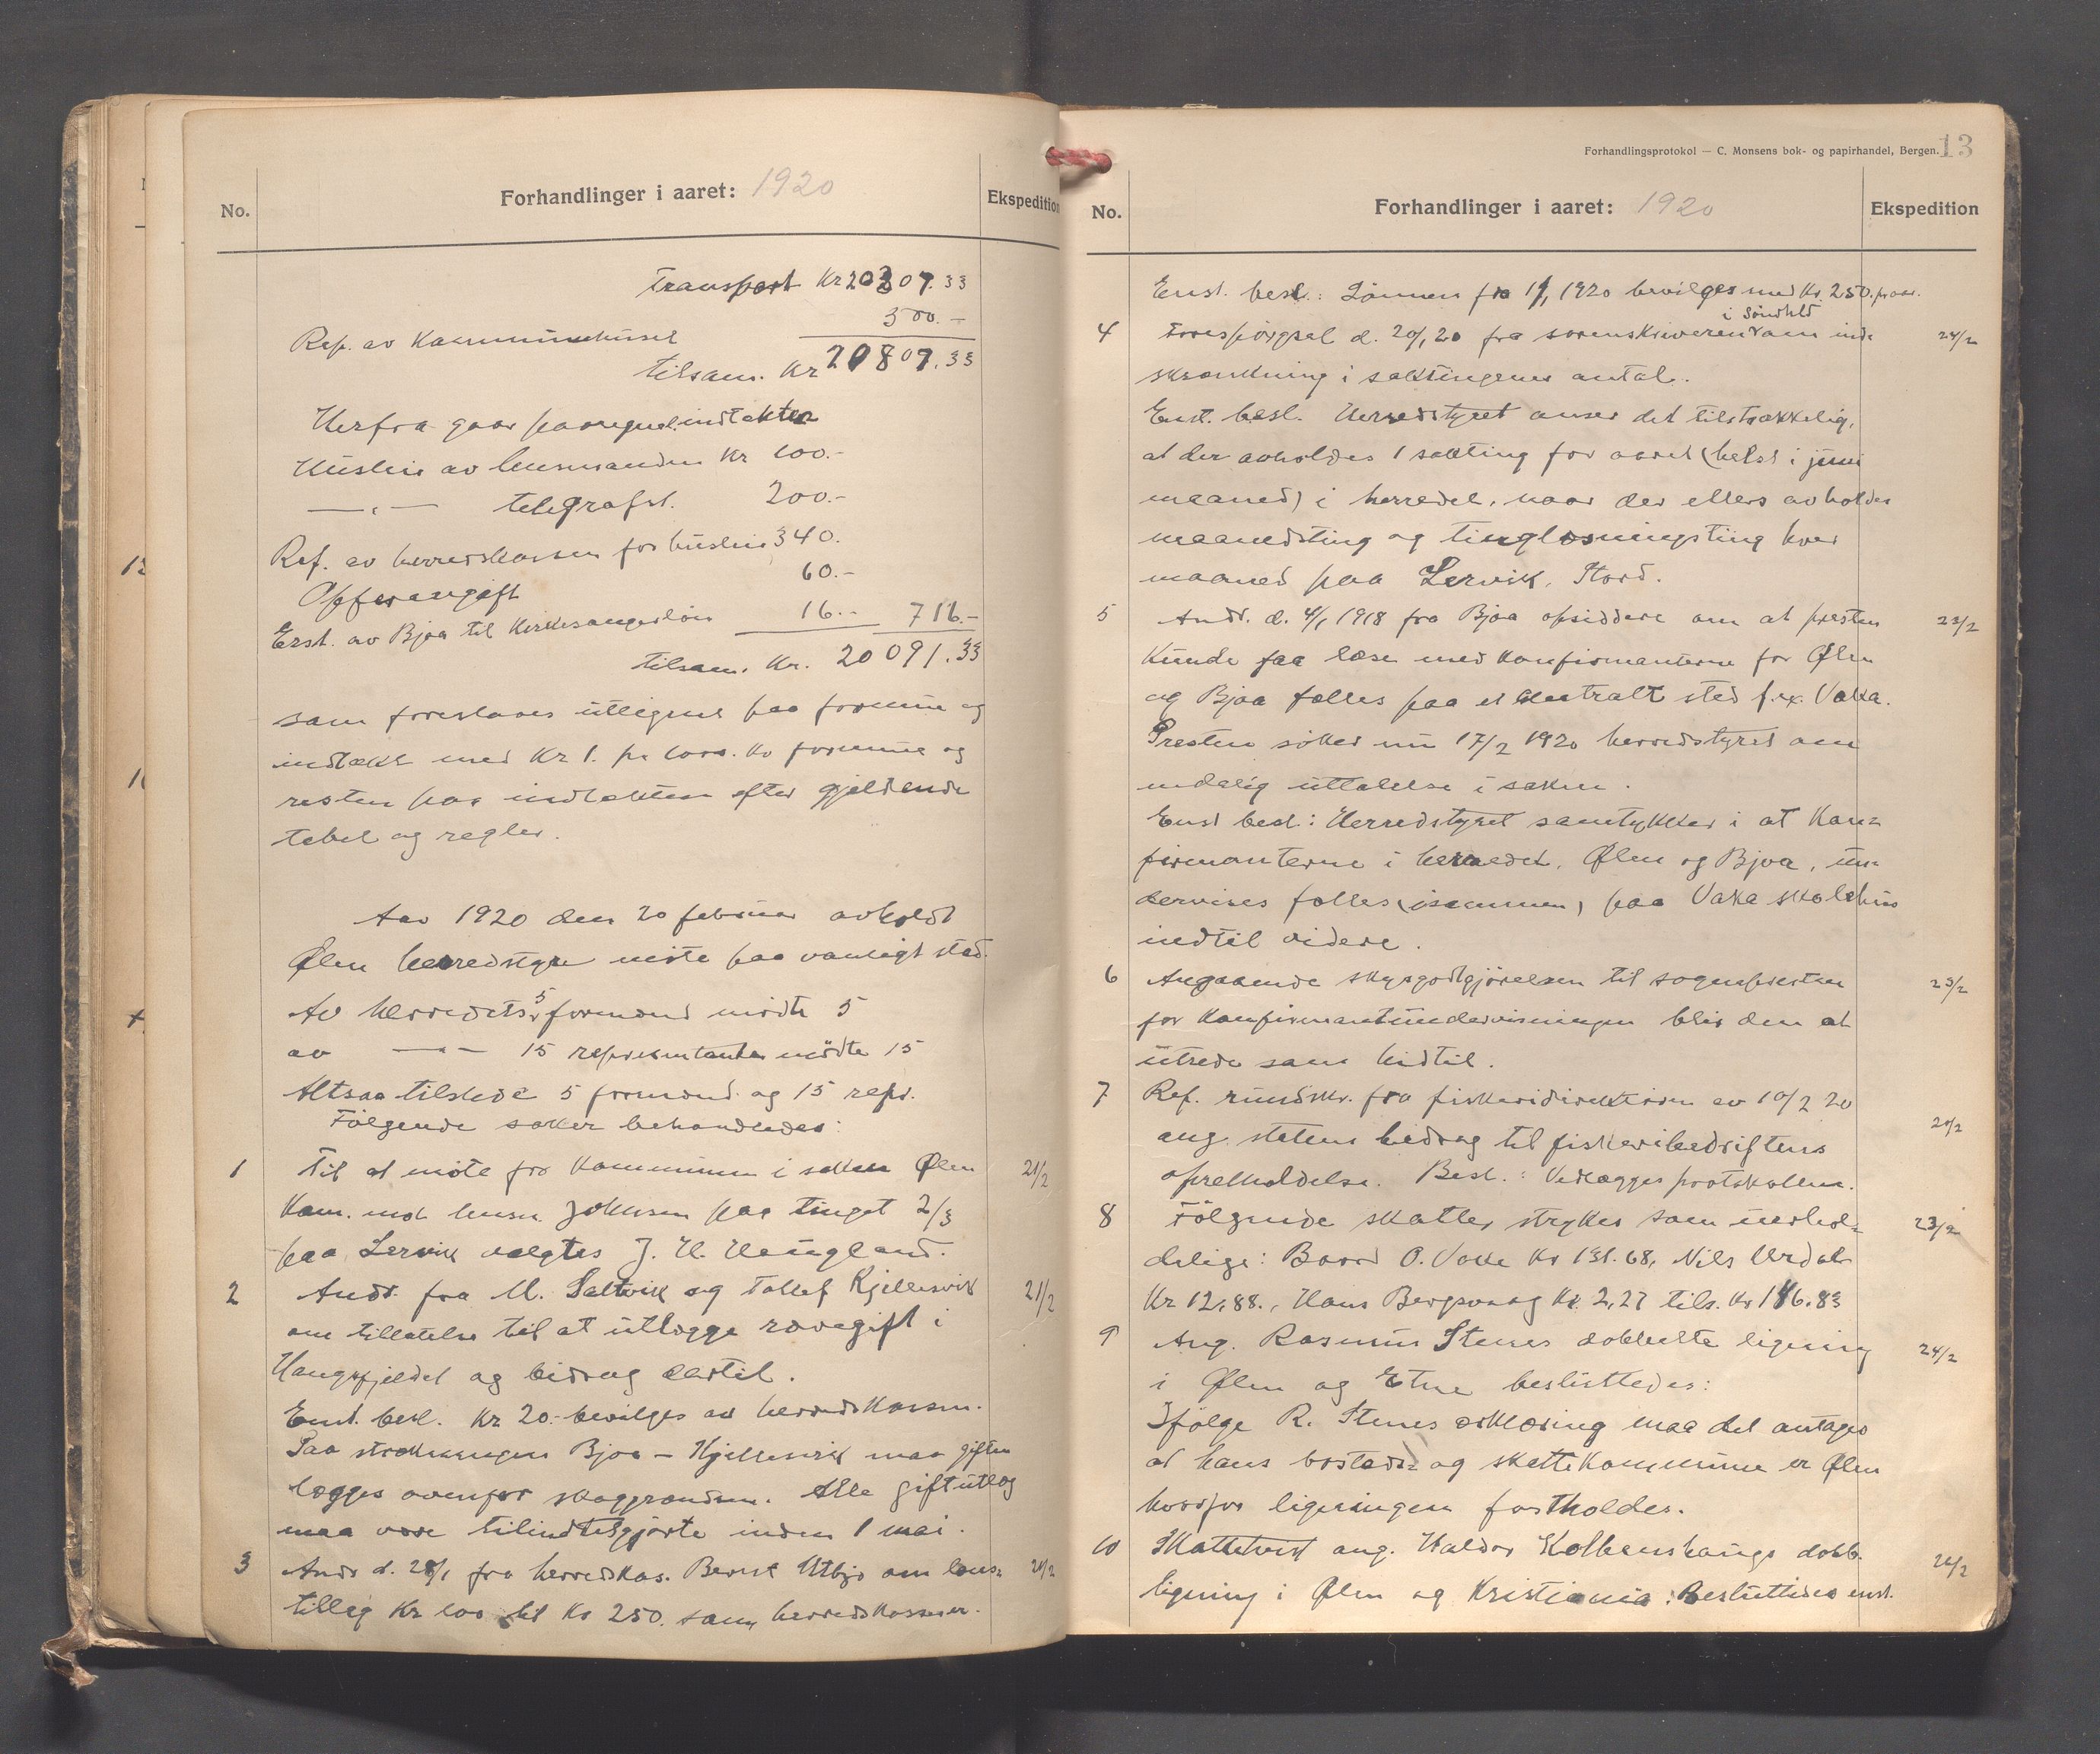 No.
Forhandlinger i aaret: 1920
Ekspedition
Transport Kr 20307.33
Rep. av Kommunehuset 500.-
tilsam. Kr 20807.33
Herfra gaar paaregnel. indtekter
Husleie av lensmanden Kr 100.-
—"— telegrafst. 200.-
Ref. av herredskassen for husleie 340.
Offeravgift 60.-
Erst. av Bjoa til Kirkesangerløn 16.- 716.-
tilsam. Kr. 20091.33
som foreslaaes utlignet paa formue og
indtækt med Kr 1. pr 1000. Kr formue og
resten paa indtækten efter gjeldende
tabel og regler.
Aar 1920 den 20 februar avholdt
Ølen herredstyre møte paa vanligt sted.
Av herredets 5 formænd mødte 5
av —"— 15 repræsentanter mödte 15
Altsaa tilstede 5 formænd og 15 repr.
Følgende saker behandledes:
1 Til at møte for Kommunen i saken Ølen 21/2
Kom. mot lensm. Johnsen paa tinget 2/3
paa Lervik valgtes J. H. Haugland.
2 Andr. fra M. Saltvik og Tollef Kjellesvik 21/2
om tillatelse til at utlægge rævegift i
Haugsfjeldet og bidrag dertil.
Enst. besl. Kr 20.- bevilges av herredskassen.
Paa strækningen Bjoa – Kjellesvik maa giften
lægges ovenfor skoggrænden. Alle giftutlæg
maa være tilindtetgjorte inden 1 mai.
3 Andr d. 28/1 fra herredskas. Bernt Utbjo om løns- 21/2
tillæg Kr 100 til Kr 250. som herredskasserer.
Forhandlingsprotokol — C. Monsens bok- og papirhandel, Bergen.
13
No.
Forhandlinger i aaret: 1920
Ekspedition
Enst. besl.: Lønnen fra 1/1 1920 bevilges med Kr. 250. pr aar.
i Söndhld
4 Forespørgsel d. 20/1 20 fra sorenskriveren om ind- 24/2
skrænkning i saktingenes antal.
Enst. besl. Herredstyret anser det tilstrækkelig,
at der avholdes 1 sakting for aaret (helst i juni
maaned) i herredet, naar der ellers avholdes
maanedsting og tinglæsningsting hver
maaned paa Lervik, Stord.
5 Andr. d. 4/1 1918 fra Bjoa opsiddere om at presten 23/2
kunde faa læse med konfirmanterne for Ølen
og Bjoa fælles paa et sentralt sted f.ex. Vaka.
Presten søker nu 17/2 1920 herredstyret om
endelig uttalelse i saken.
Enst besl: Herredstyret samtykker i at Kon-
firmanterne i herredet, Ølen og Bjoa, un-
dervises fælles (isammen) paa Vaka skolehus
indtil videre.
6 Angaaende skysgodtgjørelsen til sognepresten 23/2
for Konfirmantundervisningen blir den at
utrede som hidtil.
7 Ref. rundskr. fra fiskeridirektøren av 10/2 20
ang. statens bidrag til fiskeribedriftens 20/2
opretholdelse. Besl.: Vedlægges protokollen.
8 Følgende skatter strykes som uerhol- 23/2
delige: Baard O. Vake Kr 131.68, Nils Urdal
Kr 12.88., Hans Bergsvaag Kr. 2,27 tils. Kr 146.83
9 Ang. Rasmus Stenes dobbelte ligning 24/2
i Ølen og Etne besluttedes:
Ifølge R. Stenes erklæring maa det antages
at hans bosteds- og skattekommune er Ølen
hvorfor ligningen fastholdes.
10 Skattetvist ang. Haldor Kolbenshaugs dobb. 24/2
ligning i Ølen og Kristiania: Besluttedes enst.